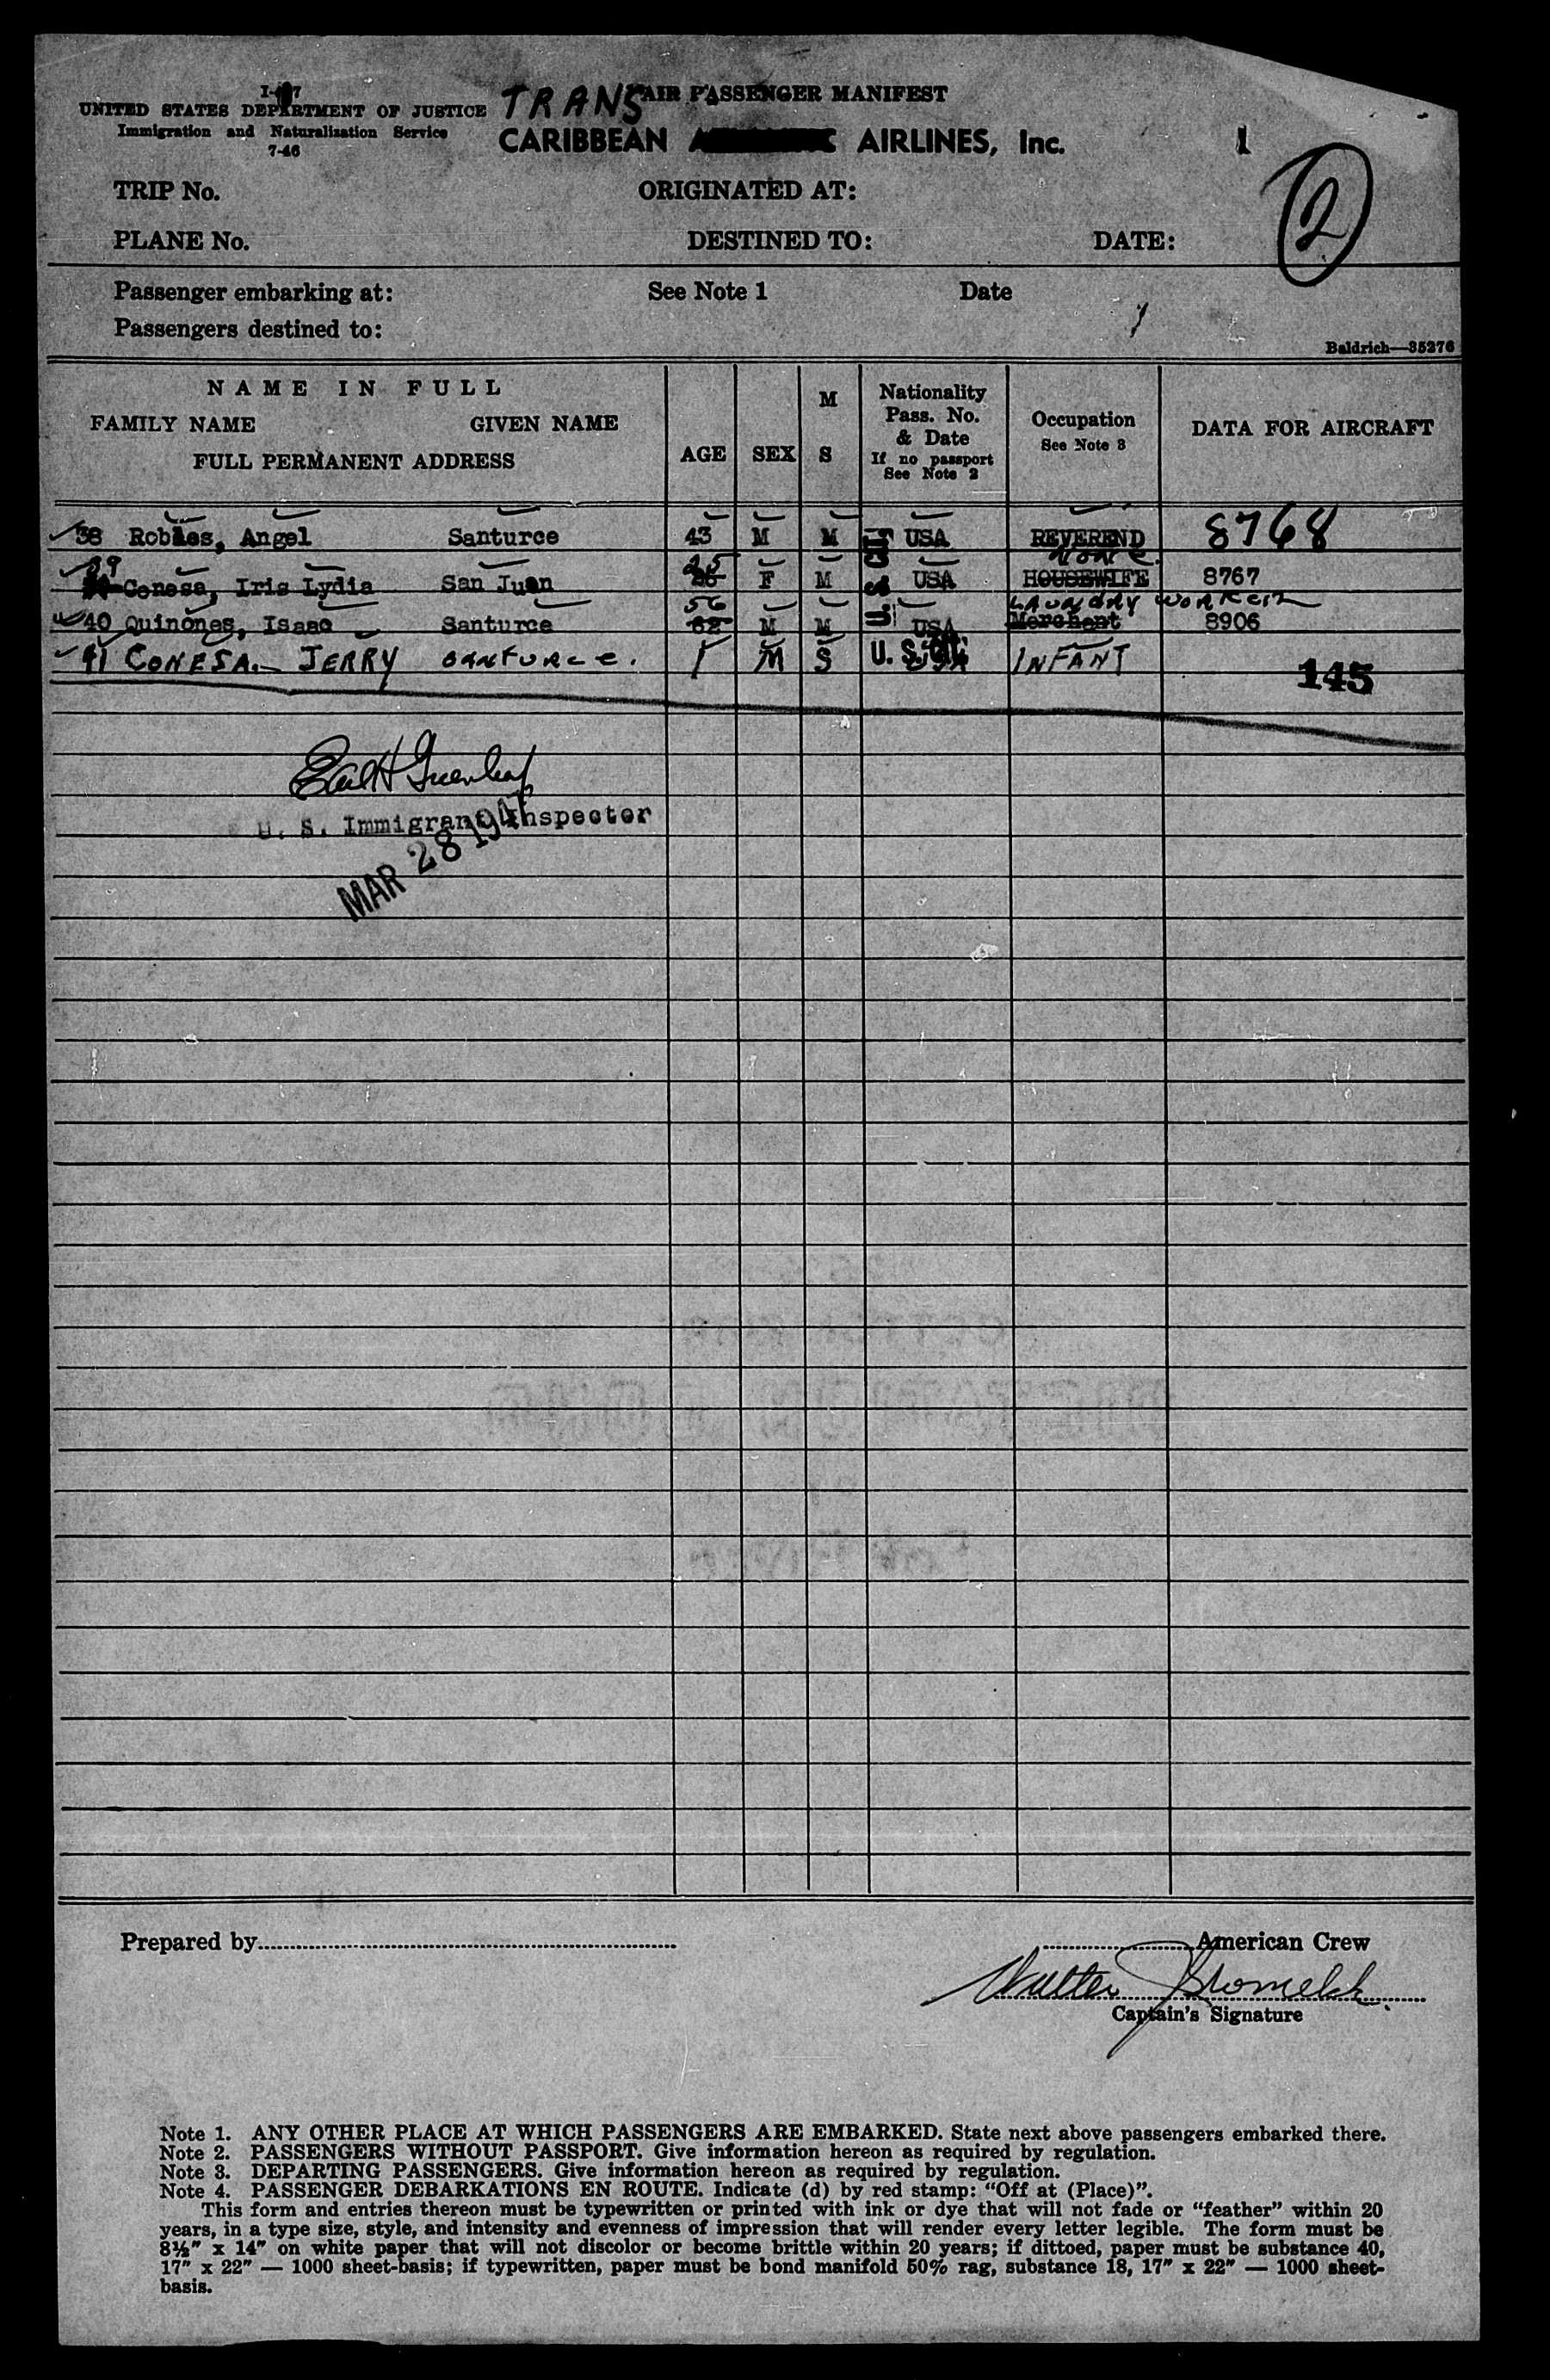 I-
UNITED STATES DEPARTMENT OF JUSTICE
Immigration and Naturalization Service
7-46
AIR PASSENGER MANIFEST
TRANS
CARIBBEAN AIRLINES, Inc.
1
2
TRIP No. ORIGINATED AT:
PLANE No. DESTINED TO: DATE:
Passenger embarking at: See Note 1 Date
Passengers destined to:
Baldrich—35276
NAME IN FULL
FAMILY NAME GIVEN NAME
FULL PERMANENT ADDRESS
AGE
SEX
M
S
Nationality
Pass. No.
& Date
If no passport
See Note 2
Occupation
See Note 3
DATA FOR AIRCRAFT
38 Robles, Angel Santurce 43 M M USA REVEREND 8768
39 25 None
Conesa, Iris Lydia San Juan F M USA HOUSEWIFE 8767
56 LAUNDRY WORKER
40 Quinones, Isaac Santurce 62 M M USA Merchant 8906
41 CONESA. JERRY SANTURCE. 1 M S U. S. INFANT
145
U. S. Immigrant Inspector
MAR 28 1947
Prepared by
American Crew
Walter
Captain's Signature
Note 1. ANY OTHER PLACE AT WHICH PASSENGERS ARE EMBARKED. State next above passengers embarked there.
Note 2. PASSENGERS WITHOUT PASSPORT. Give information hereon as required by regulation.
Note 3. DEPARTING PASSENGERS. Give information hereon as required by regulation.
Note 4. PASSENGER DEBARKATIONS EN ROUTE. Indicate (d) by red stamp: "Off at (Place)".
This form and entries thereon must be typewritten or printed with ink or dye that will not fade or "feather" within 20
years, in a type size, style, and intensity and evenness of impression that will render every letter legible. The form must be
8½" x 14" on white paper that will not discolor or become brittle within 20 years; if dittoed, paper must be substance 40,
17" x 22" — 1000 sheet-basis; if typewritten, paper must be bond manifold 50% rag, substance 18, 17" x 22" — 1000 sheet-
basis.